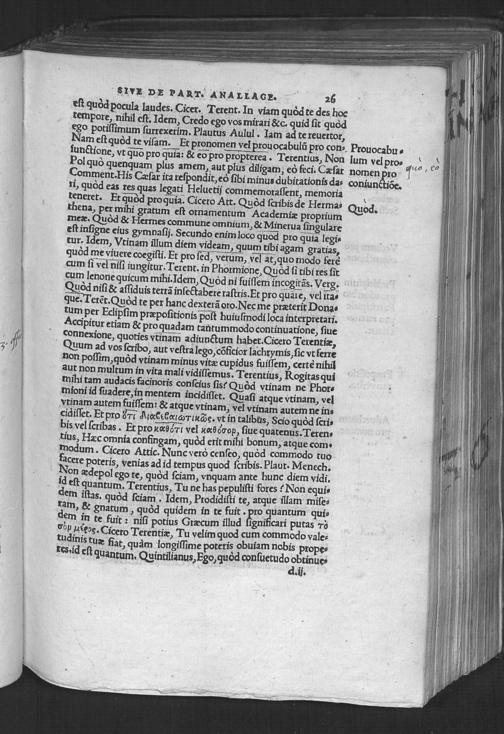 SIVE DE PART. ANALLAGE. 26
est quòd pocula laudes. Cicer. Terent. In viam quòd te des hoc
tempore, nihil est. Idem, Credo ego vos mirari &c. quid sit quòd
ego potissimum surrexerim. Plautus Aulul. Iam ad te reuertor,
Nam est quòd te visam. Et pronomen vel prouocabulũ pro con-
iunctione, vt quo pro quia: & eo pro propterea. Terentius, Non
Pol quò quenquam plus amem, aut plus diligam, eò feci. Cæsar
Comment. His Cæsar ita respondit, eo sibi minus dubitationis da-
ri, quòd eas res quas legati Heluetij commemorassent, memoria
teneret. Et quòd pro quia. Cicero Att. Quòd scribis de Herma-
thena, per mihi gratum est ornamentum Academiæ proprium
meæ. Quòd & Hermes commune omnium, & Minerua singulare
est insigne eius gymnasij. Secundo enim loco quod pro quia legi-
tur. Idem, Vtinam illum diem videam, quum tibi agam gratias,
quòd me viuere coegisti. Et pro sed, verum, vel at, quo modo ferè
cum si vel nisi iungitur. Terent. in Phormione, Quòd si tibi res sit
cum lenone quicum mihi. Idem, Quòd ni fuissem incogitãs. Verg.
Quòd nisi & assiduis terrã insectabere rastris. Et pro quare, vel ita-
que. Terẽt. Quòd te per hanc dexterã oro. Nec me præterit Dona-
tum per Eclipsim præpositionis post huiusmodi loca interpretari.
Accipitur etiam & pro quadam tantummodo continuatione, siue
connexione, quoties vtinam adiunctum habet. Cicero Terentiæ,
Quum ad vos scribo, aut vestra lego, cõficior lachrymis, sic vt ferre
non possim, quòd vtinam minus vitæ cupidus fuissem, certè nihil
aut non multum in vita mali vidissemus. Terentius, Rogitas qui
mihi tam audacis facinoris conscius sis? Quòd vtinam ne Phor-
mioni id suadere, in mentem incidisset. Quasi atque vtinam, vel
vtinam autem fuissem: & atque vtinam, vel vtinam autem ne in-
cidisset. Et pro ὅτι διαβεβαιωτικῶς. vt in talibus, Scio quòd scri-
bis vel scribas. Et pro καθότι vel καθόσον, siue quatenus. Teren-
tius, Hæc omnia confingam, quòd erit mihi bonum, atque com-
modum. Cicero Attic. Nunc verò censeo, quòd commodo tuo
facere poteris, venias ad id tempus quod scribis. Plaut. Menech.
Non ædepol ego te, quòd sciam, vnquam ante hunc diem vidi.
id est quantum. Terentius, Tu ne has pepulisti fores? Non equi-
dem istas. quòd sciam. Idem, Prodidisti te, atque illam mise-
ram, & gnatum, quòd quidem in te fuit. pro quantum qui-
dem in te fuit: nisi potius Græcum illud significari putas τὸ
σὸν μέρος. Cicero Terentiæ, Tu velim quod cum commodo vale-
tudinis tuæ fiat, quàm longissime poteris obuiam nobis prope-
res. id est quantum. Quintilianus, Ego, quòd consuetudo obtinue-
d.ij.
Prouocabu-
lum vel pro-
nomen pro
coniunctiõe.
quo, eò
Quod.